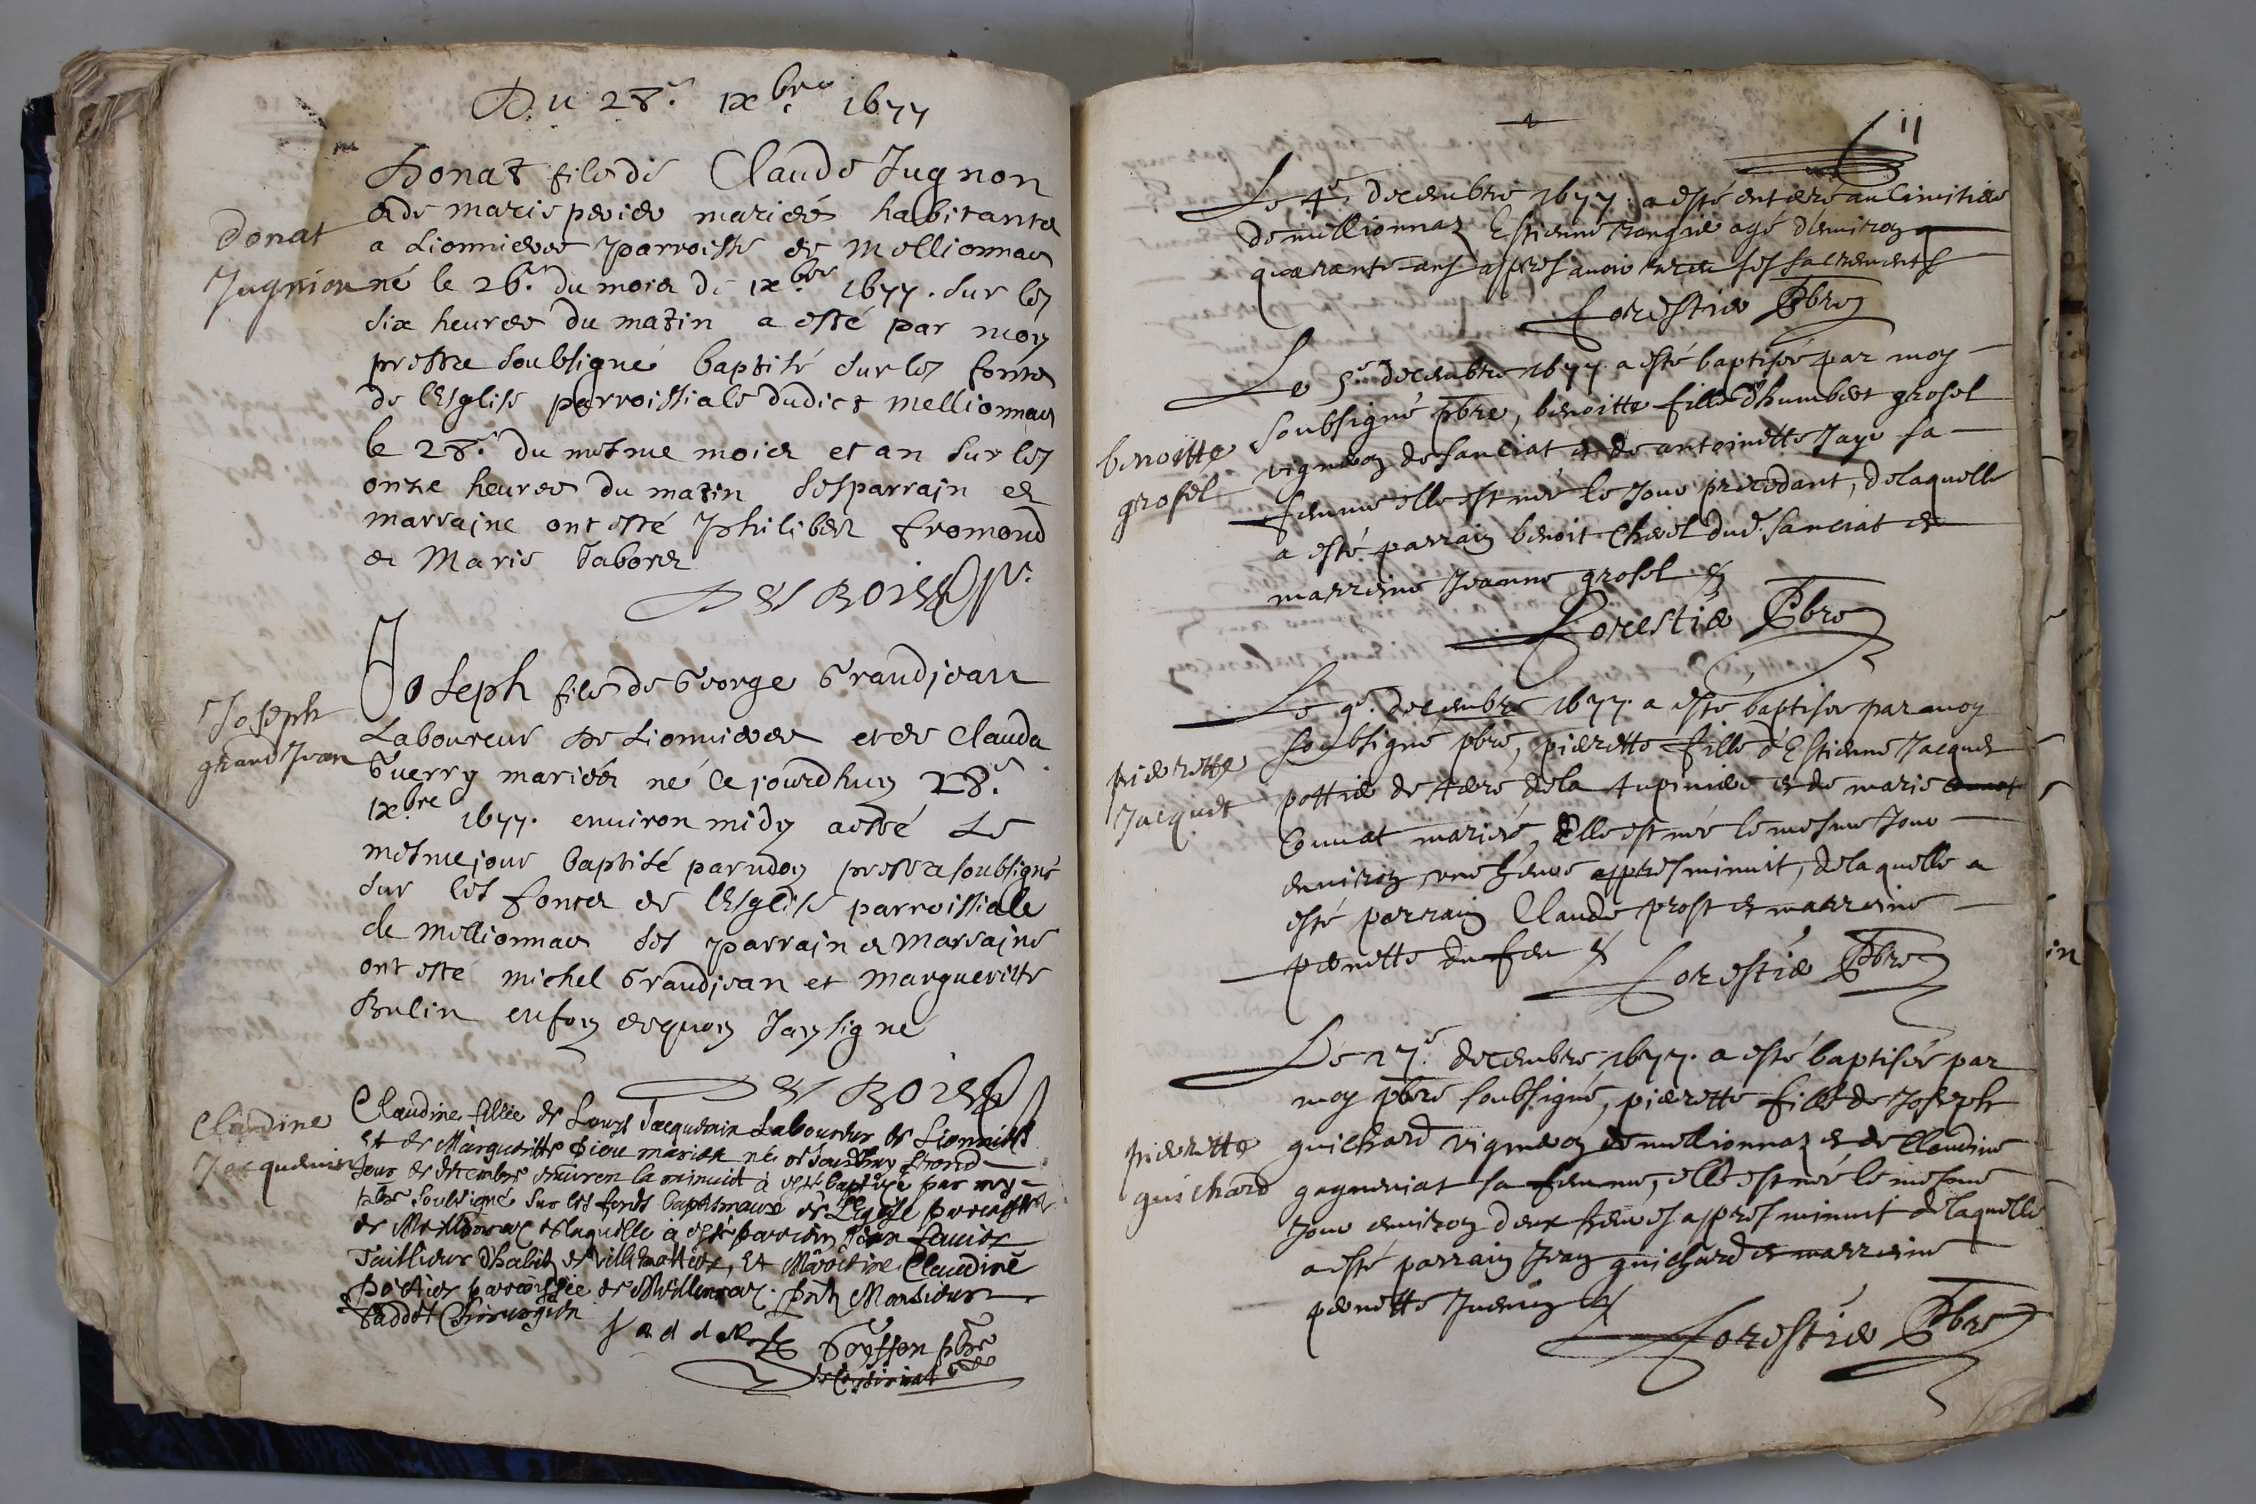 Du 28e. ixbre 1677
Donat fils de Claude Jugnon
et de marie mariés habitants
a Lionnieres parroisse de Mellionnas
Donat
Jugnion
né le 26e. du mois de ixbre 1677. sur les
six heures du matin a esté par moy
prestre soubsigné baptisé sur les fonts
de lesglise parroissiale dudict mellionnas
le 28e. du mesme mois et an sur les
onze heures du matin ses parrain et
marraine ont esté philibert fromond
et Marie
Joseph fils de George Grandjean
Joseph
grand Jean
Laboureur de Lionnieres et de Clauda
Guerry mariés né ce jourdhuy 28e.
ixbre 1677. environ midy a esté le
mesme jour baptisé par moy prestre soubsigné
sur les fonts de lesglise parroissiale
de mellionnas ses parrain et marraine
ont esté michel Grandjean et margueritte
Bulin en foy dequoy Jay signé
Claudine
Jacquemin
Claudine fillie de Louys Jacquemin Laboureur de Lionnieres
et de Margueritte mariés né ce jourdhuy second
jour de decembre environ la minuict à esté baptisée par moy
pbre soubsigné sur les fonts baptismaux de L'Eglise parroissialle
de Mellionnaz de laquelle à esté parrein Jean
Taillieur d'habitz de et Marreine Claudine
parroissie de Meillionnaz. pnts Monsieur
Chirurgien
pbre
11
Le 4e. decembre 1677. a esté enterré au cimitiere
de meillionnaz Estienne agé d'environ
quarante ans appres avoir receu ses sacrements
Forestier Pbre
Le 5e decembre 1677 a esté baptisée par moy
benoitte
grosel
soubsigné pbre, benoitte fille d'humbert grosel
vigneron de sanciat et de antoinette Jayr sa
femme elle est née le Jour precedant, de laquelle
a esté parrain benoit dud. sanciat et
marreine Jeanne grosel &
Forestier Pbre
Le 9e. decembre 1677. a esté baptisée par moy
pierrette
Jacquet
soubsigné pbre, pierrette fille d'Estienne Jacquet
pottier de terre de la tupiniere et de marie
Connat mariés, Elle est née le mesme Jour
environ une heure appres minuit, de laquelle a
esté parrain Claude prost et marreine
pernette du feu &
Forestier Pbre
Le 17e. decembre 1677. a esté baptisée par
moy pbre soubsigné, pierrette fille de Joseph
pierrette
guichard
guichard vigneron de meillionnaz et de Claudine
gagneriat sa femme, elle est née le mesme
Jour environ deux heures appres minuit de laquelle
a esté parrain Jean guichard et marreine
pernette &
Forestier Pbre